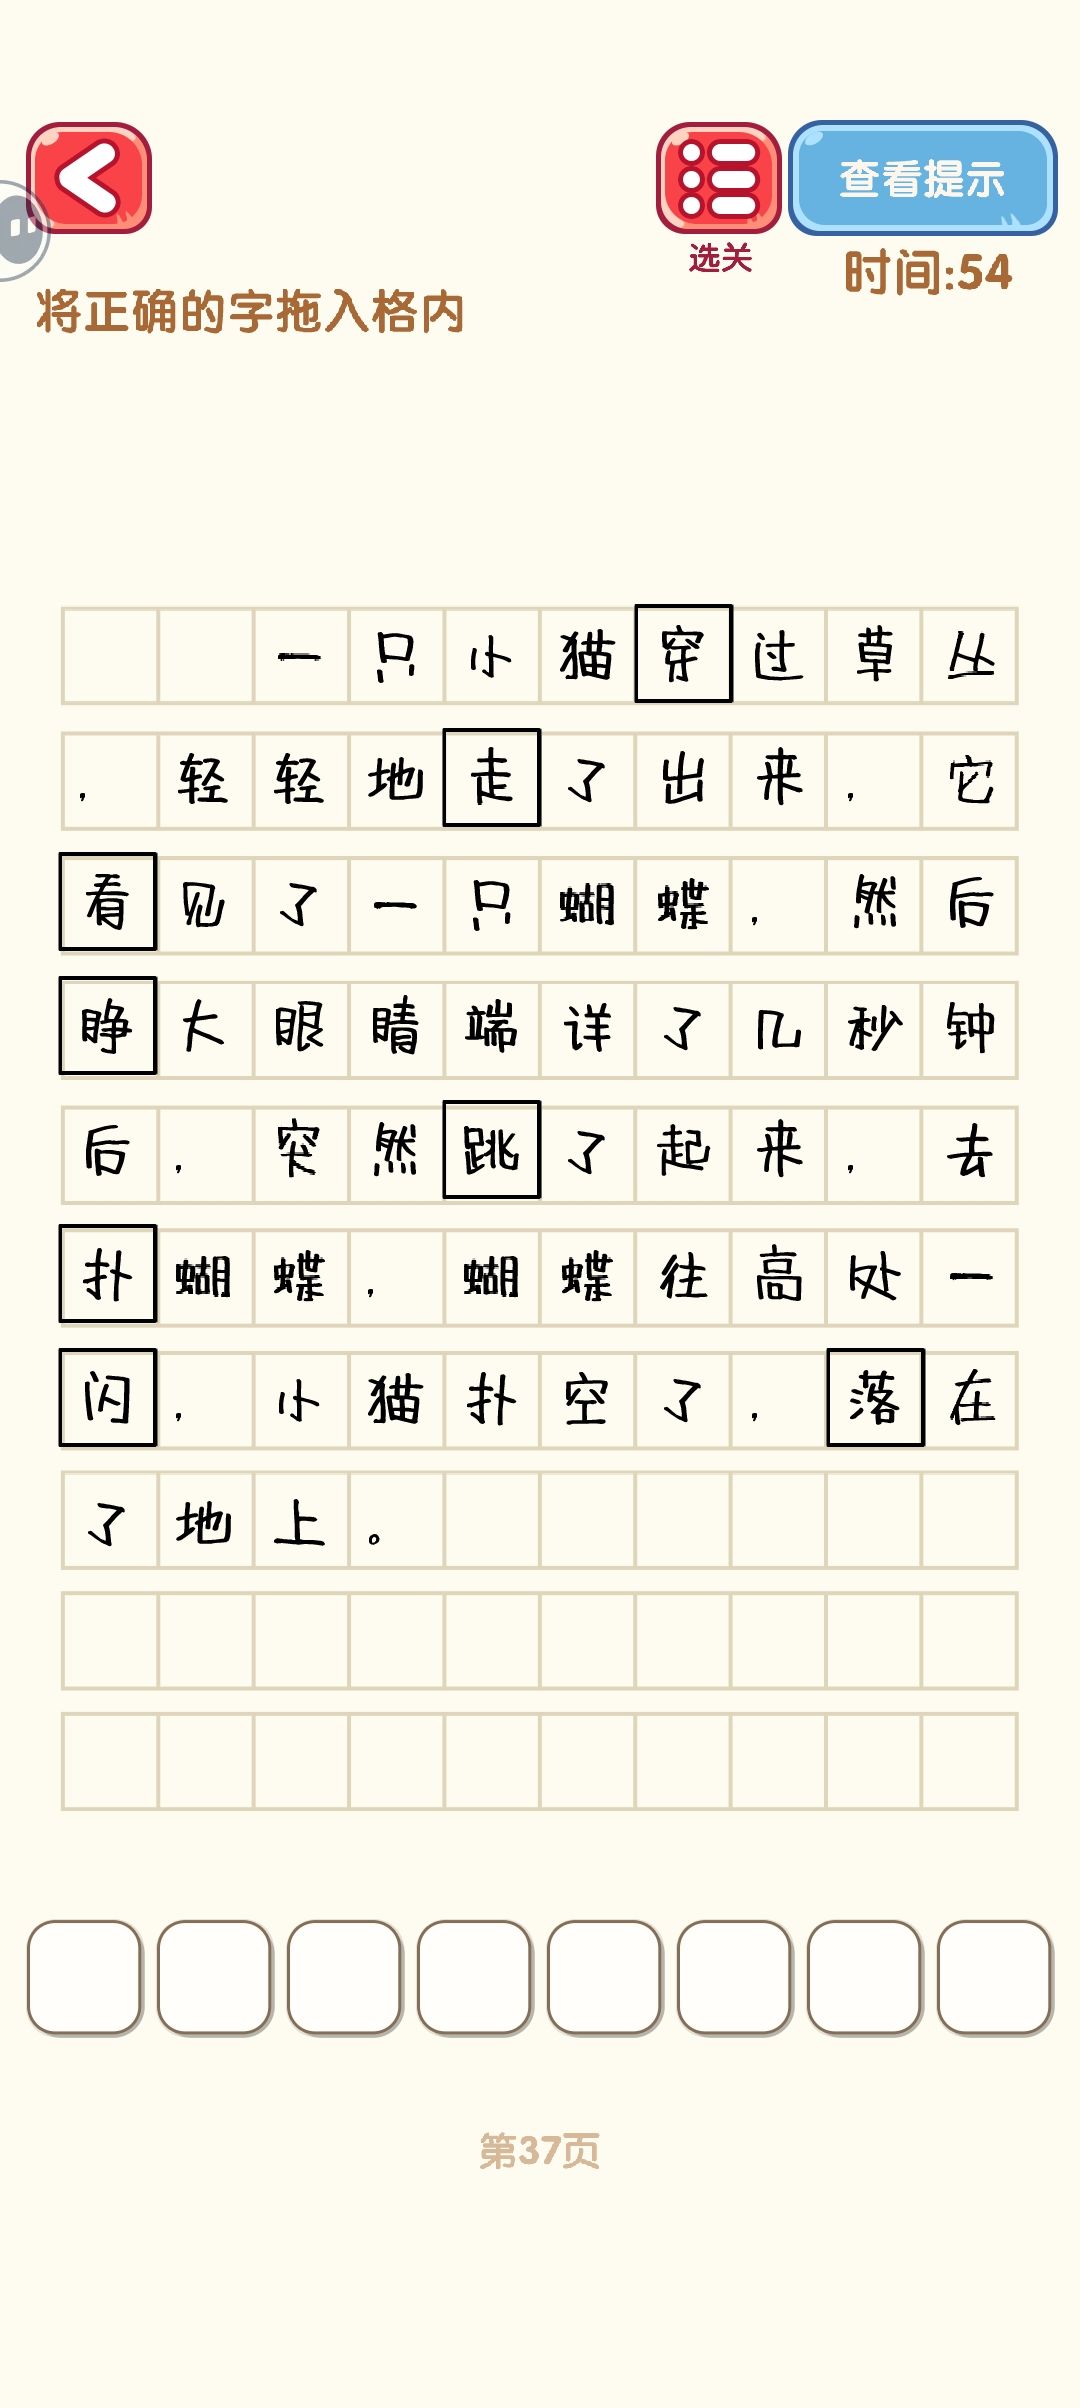 查看提示
选关
时间:54
将正确的字拖入格内
一只小猫穿过草丛
，轻轻地走了出来，它
看见了一只蝴蝶，然后
睁大眼睛端详了几秒钟
后，突然跳了起来，去
扑蝴蝶，蝴蝶往高处一
闪，小猫扑空了，落在
了地上。
第37页